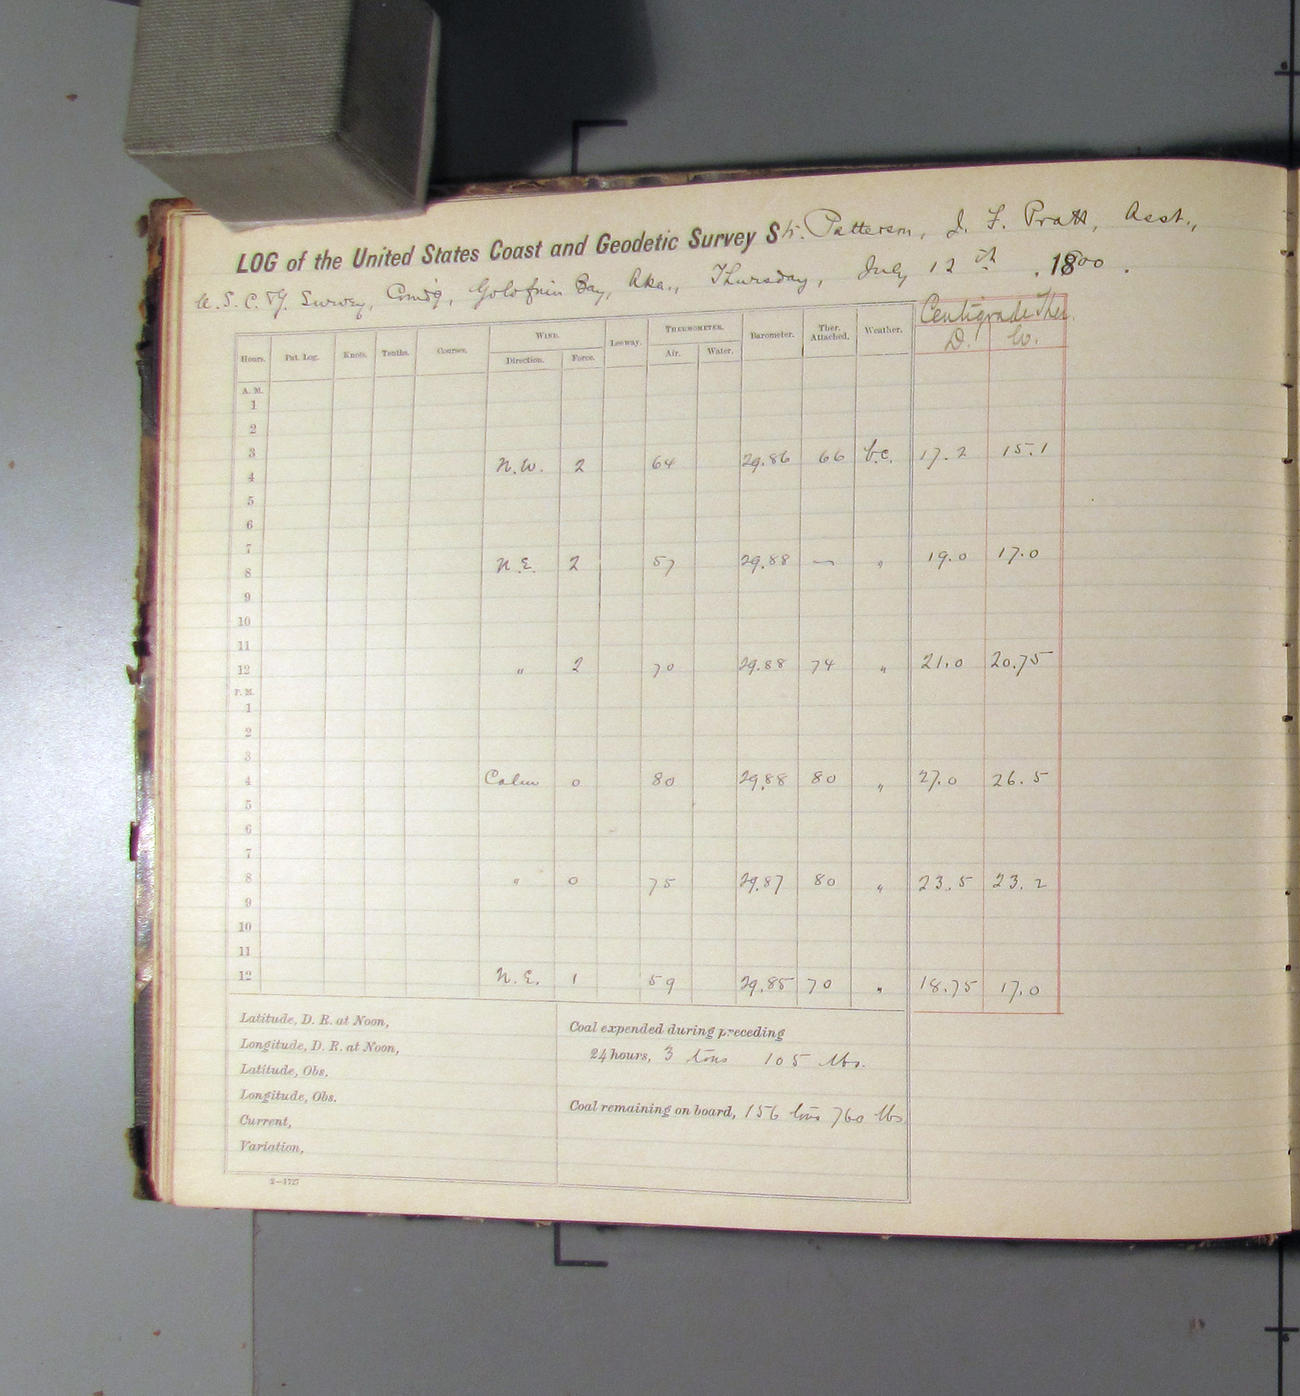 LOG of the United States Coast and Geodetic Survey Str. Patterson, J. F. Pratt, Asst.,
U. S. C. & G. Survey, Comd'g, Golofnin Bay, Aka., Thursday, July 12th, 1800.
Centigrade Ther.
Hours. Pat. Log. Knots. Tenths. Courses. WIND. Leeway. THERMOMETER. Barometer. Ther. Attached. Weather. D. W.
Direction. Force. Air. Water.
A. M.
1
2
3
4 N.W. 2 64 29.86 66 b.c. 17.2 15.1
5
6
7
8 N.E. 2 57 29.88 — " 19.0 17.0
9
10
11
12 " 2 70 29.88 74 " 21.0 20.75
P. M.
1
2
3
4 Calm 0 80 29.88 80 " 27.0 26.5
5
6
7
8 " 0 75 29.87 80 " 23.5 23.2
9
10
11
12 N.E. 1 59 29.85 70 " 18.75 17.0
Latitude, D. R. at Noon,
Longitude, D. R. at Noon,
Latitude, Obs.
Longitude, Obs.
Current,
Variation,
Coal expended during preceding
24 hours, 3 tons 105 lbs.
Coal remaining on board, 156 tons 760 lbs
2—1727